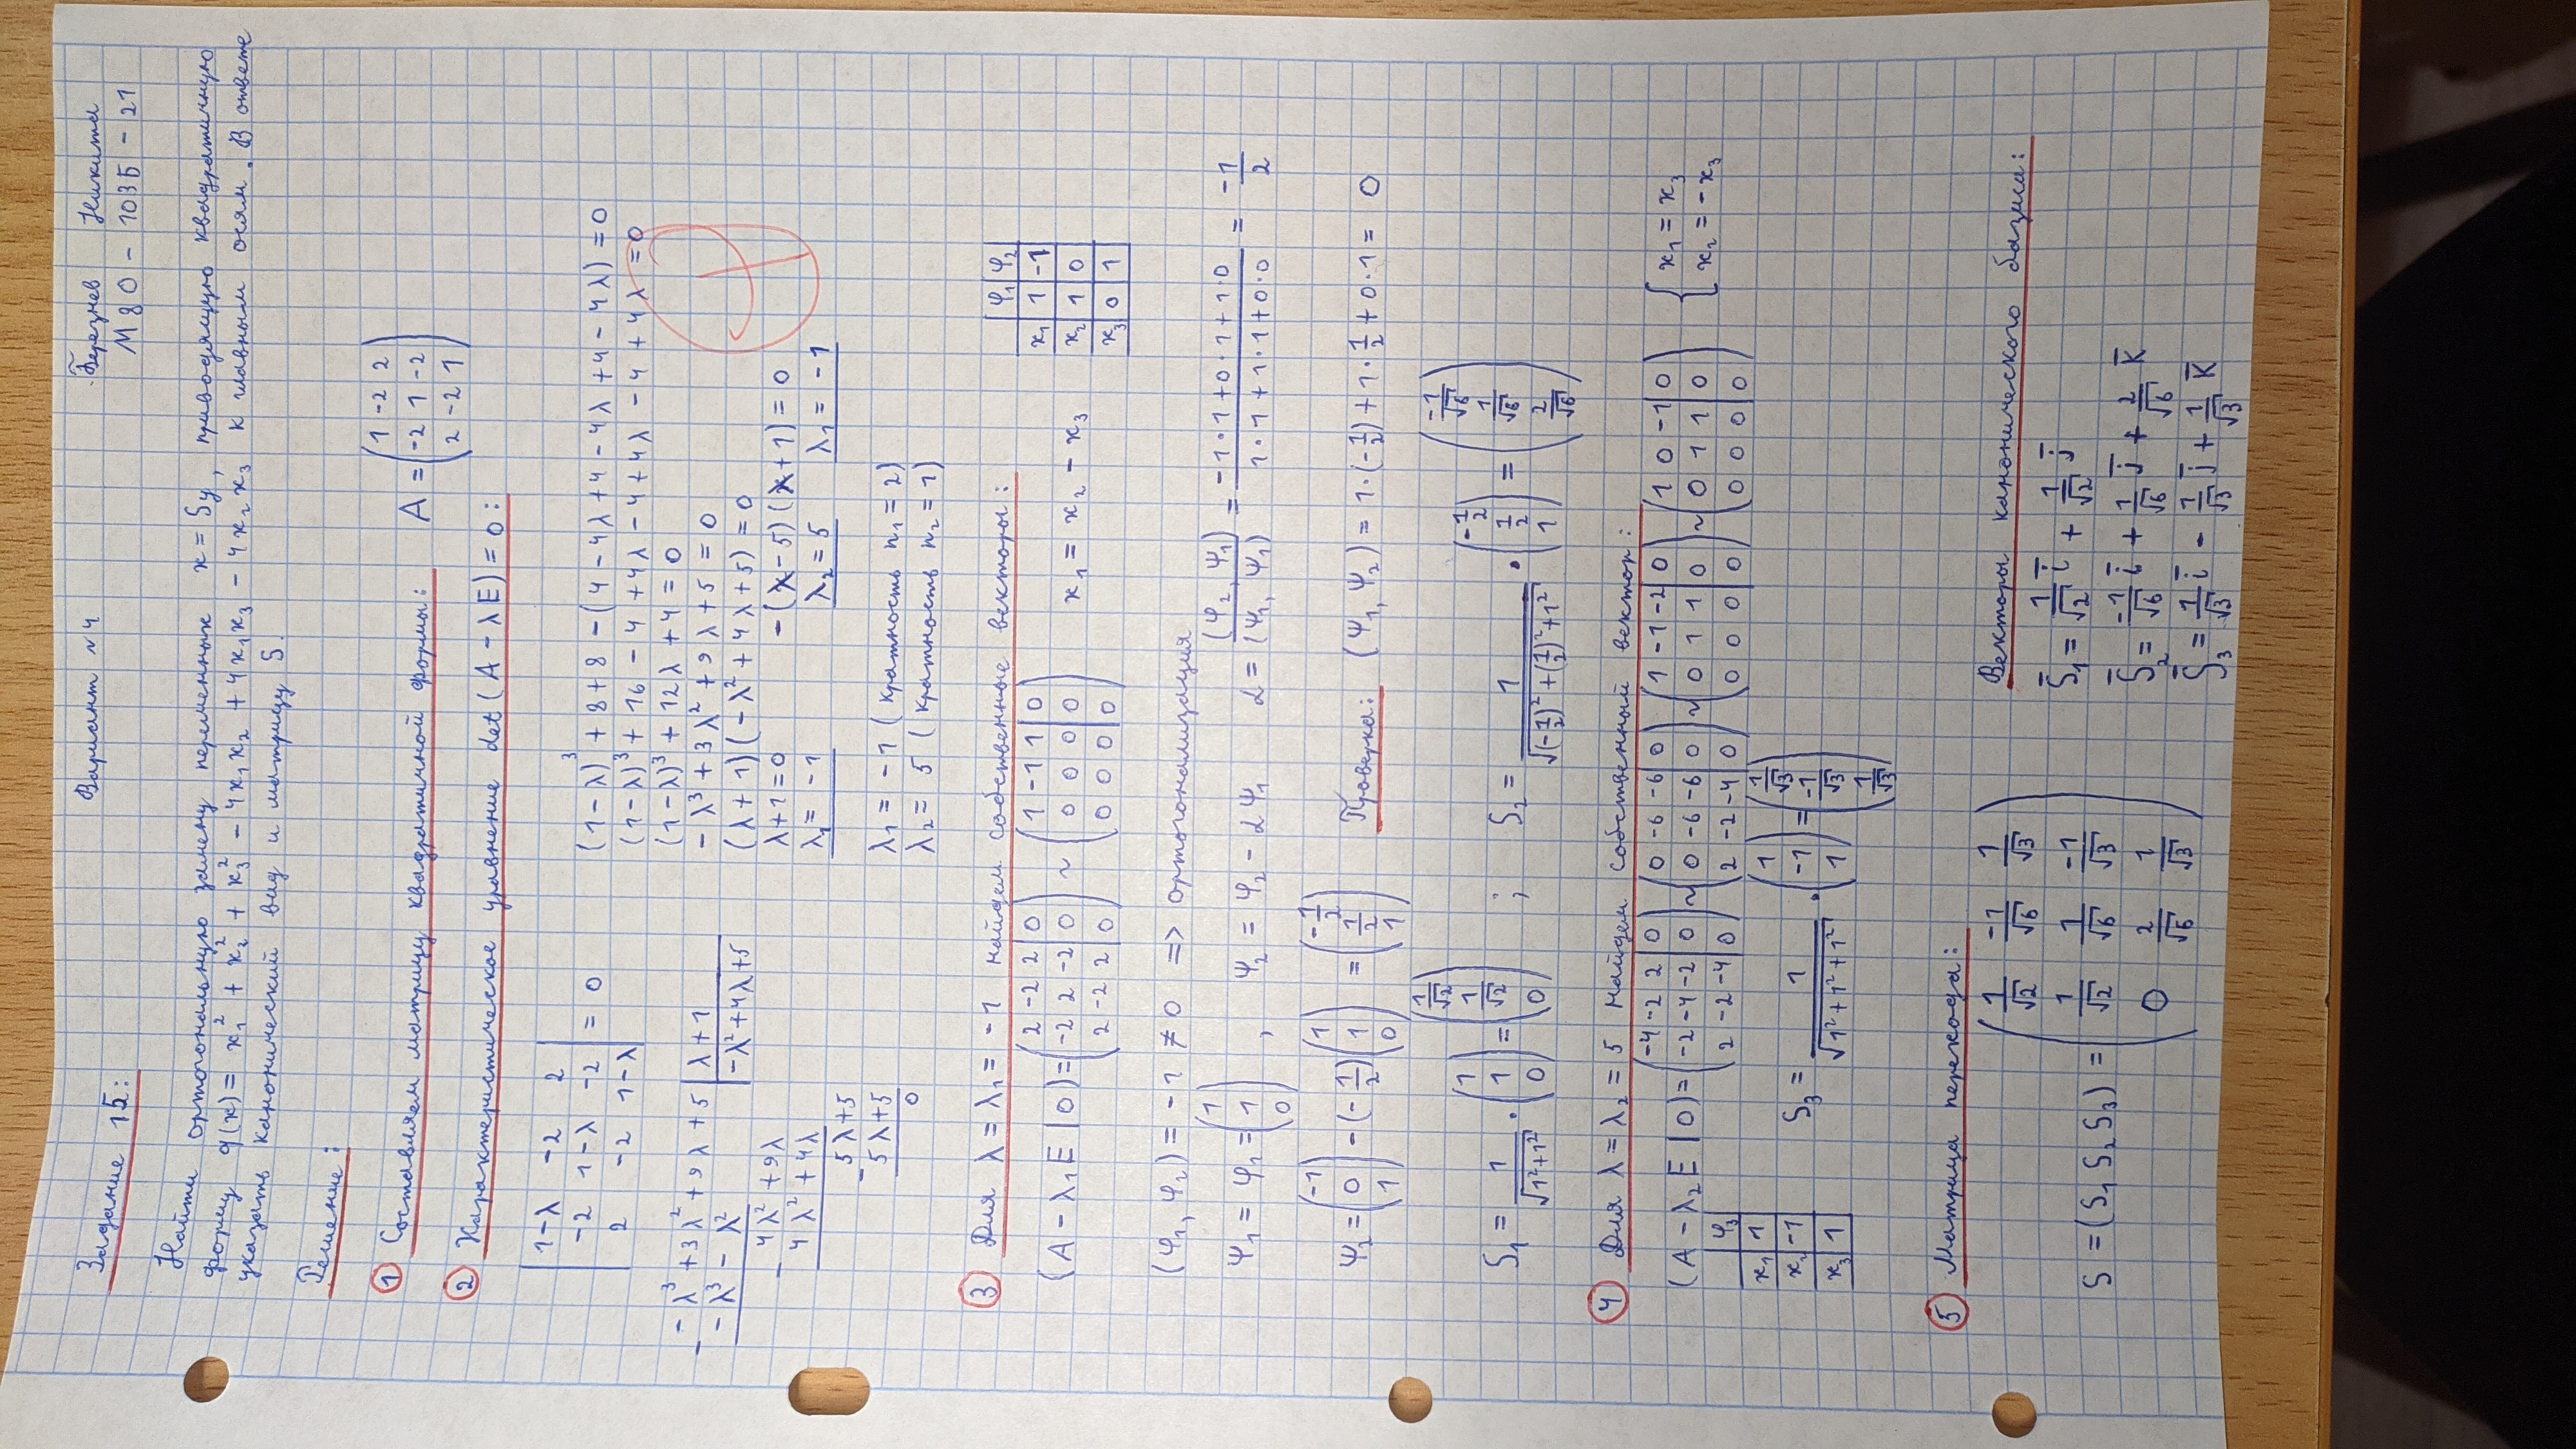 Задание 15:
Вариант №4
Березнев Никита
М8О - 103Б - 21
Найти ортогональную замену переменных x = Sy, приводящую квадратичную
форму q(x) = x₁² + x₂² + x₃² - 4x₁x₂ + 4x₁x₃ - 4x₂x₃ к главным осям. В ответе
указать канонический вид и матрицу S.
Решение:
① Составляем матрицу квадратичной формы: A = (1 -2 2
-2 1 -2
2 -2 1)
② Характеристическое уравнение det(A - λE) = 0:
|1-λ -2 2|
|-2 1-λ -2| = 0
|2 -2 1-λ|
-λ³ + 3λ² + 9λ + 5 | λ + 1
-λ³ - λ² | -λ² + 4λ + 5
4λ² + 9λ
4λ² + 4λ
5λ + 5
5λ + 5
0
(1-λ)³ + 8 + 8 - (4 - 4λ + 4 - 4λ + 4 - 4λ) = 0
(1-λ)³ + 16 - 4 + 4λ - 4 + 4λ - 4 + 4λ = 0
(1-λ)³ + 12λ + 4 = 0
-λ³ + 3λ² + 9λ + 5 = 0
(λ + 1)(-λ² + 4λ + 5) = 0
λ + 1 = 0 -(λ - 5)(λ + 1) = 0
λ₁ = -1 λ₂ = 5 λ₁ = -1
λ₁ = -1 (кратность n₁ = 2)
λ₂ = 5 (кратность n₂ = 1)
③ Для λ = λ₁ = -1 найдем собственные векторы:
(A - λ₁E | 0) = (2 -2 2 | 0
-2 2 -2 | 0
2 -2 2 | 0) ~ (1 -1 1 | 0
0 0 0 | 0
0 0 0 | 0) x₁ = x₂ - x₃
φ₁ φ₂
x₁ 1 -1
x₂ 1 0
x₃ 0 1
(φ₁, φ₂) = -1 ≠ 0 => ортогонализация
ψ₁ = φ₁ = (1 1 0), ψ₂ = φ₂ - αψ₁ α = (φ₂, ψ₁)/(ψ₁, ψ₁) = (-1·1 + 0·1 + 1·0)/(1·1 + 1·1 + 0·0) = -1/2
ψ₂ = (-1 0 1) - (-1/2)(1 1 0) = (-1/2 1/2 1) Проверка: (ψ₁, ψ₂) = 1·(-1/2) + 1·1/2 + 0·1 = 0
S₁ = 1/√(1²+1²) · (1 1 0) = (1/√2 1/√2 0) ; S₂ = 1/√((-1/2)² + (1/2)² + 1²) · (-1/2 1/2 1) = (-1/√6 1/√6 2/√6)
④ Для λ = λ₂ = 5 найдем собственный вектор:
(A - λ₂E | 0) = (-4 -2 2 | 0
-2 -4 -2 | 0
2 -2 -4 | 0) ~ (0 -6 -6 | 0
0 -6 -6 | 0
2 -2 -4 | 0) ~ (1 -1 -2 | 0
0 1 1 | 0
0 0 0 | 0) ~ (1 0 -1 | 0
0 1 1 | 0
0 0 0 | 0) { x₁ = x₃
x₂ = -x₃
φ₃
x₁ 1
x₂ -1
x₃ 1
S₃ = 1/√(1² + 1² + 1²) · (1 -1 1) = (1/√3 -1/√3 1/√3)
⑤ Матрица перехода:
S = (S₁ S₂ S₃) = (1/√2 -1/√6 1/√3
1/√2 1/√6 -1/√3
0 2/√6 1/√3)
Векторы канонического базиса:
S̄₁ = 1/√2 ī + 1/√2 j̄
S̄₂ = -1/√6 ī + 1/√6 j̄ + 2/√6 k̄
S̄₃ = 1/√3 ī - 1/√3 j̄ + 1/√3 k̄